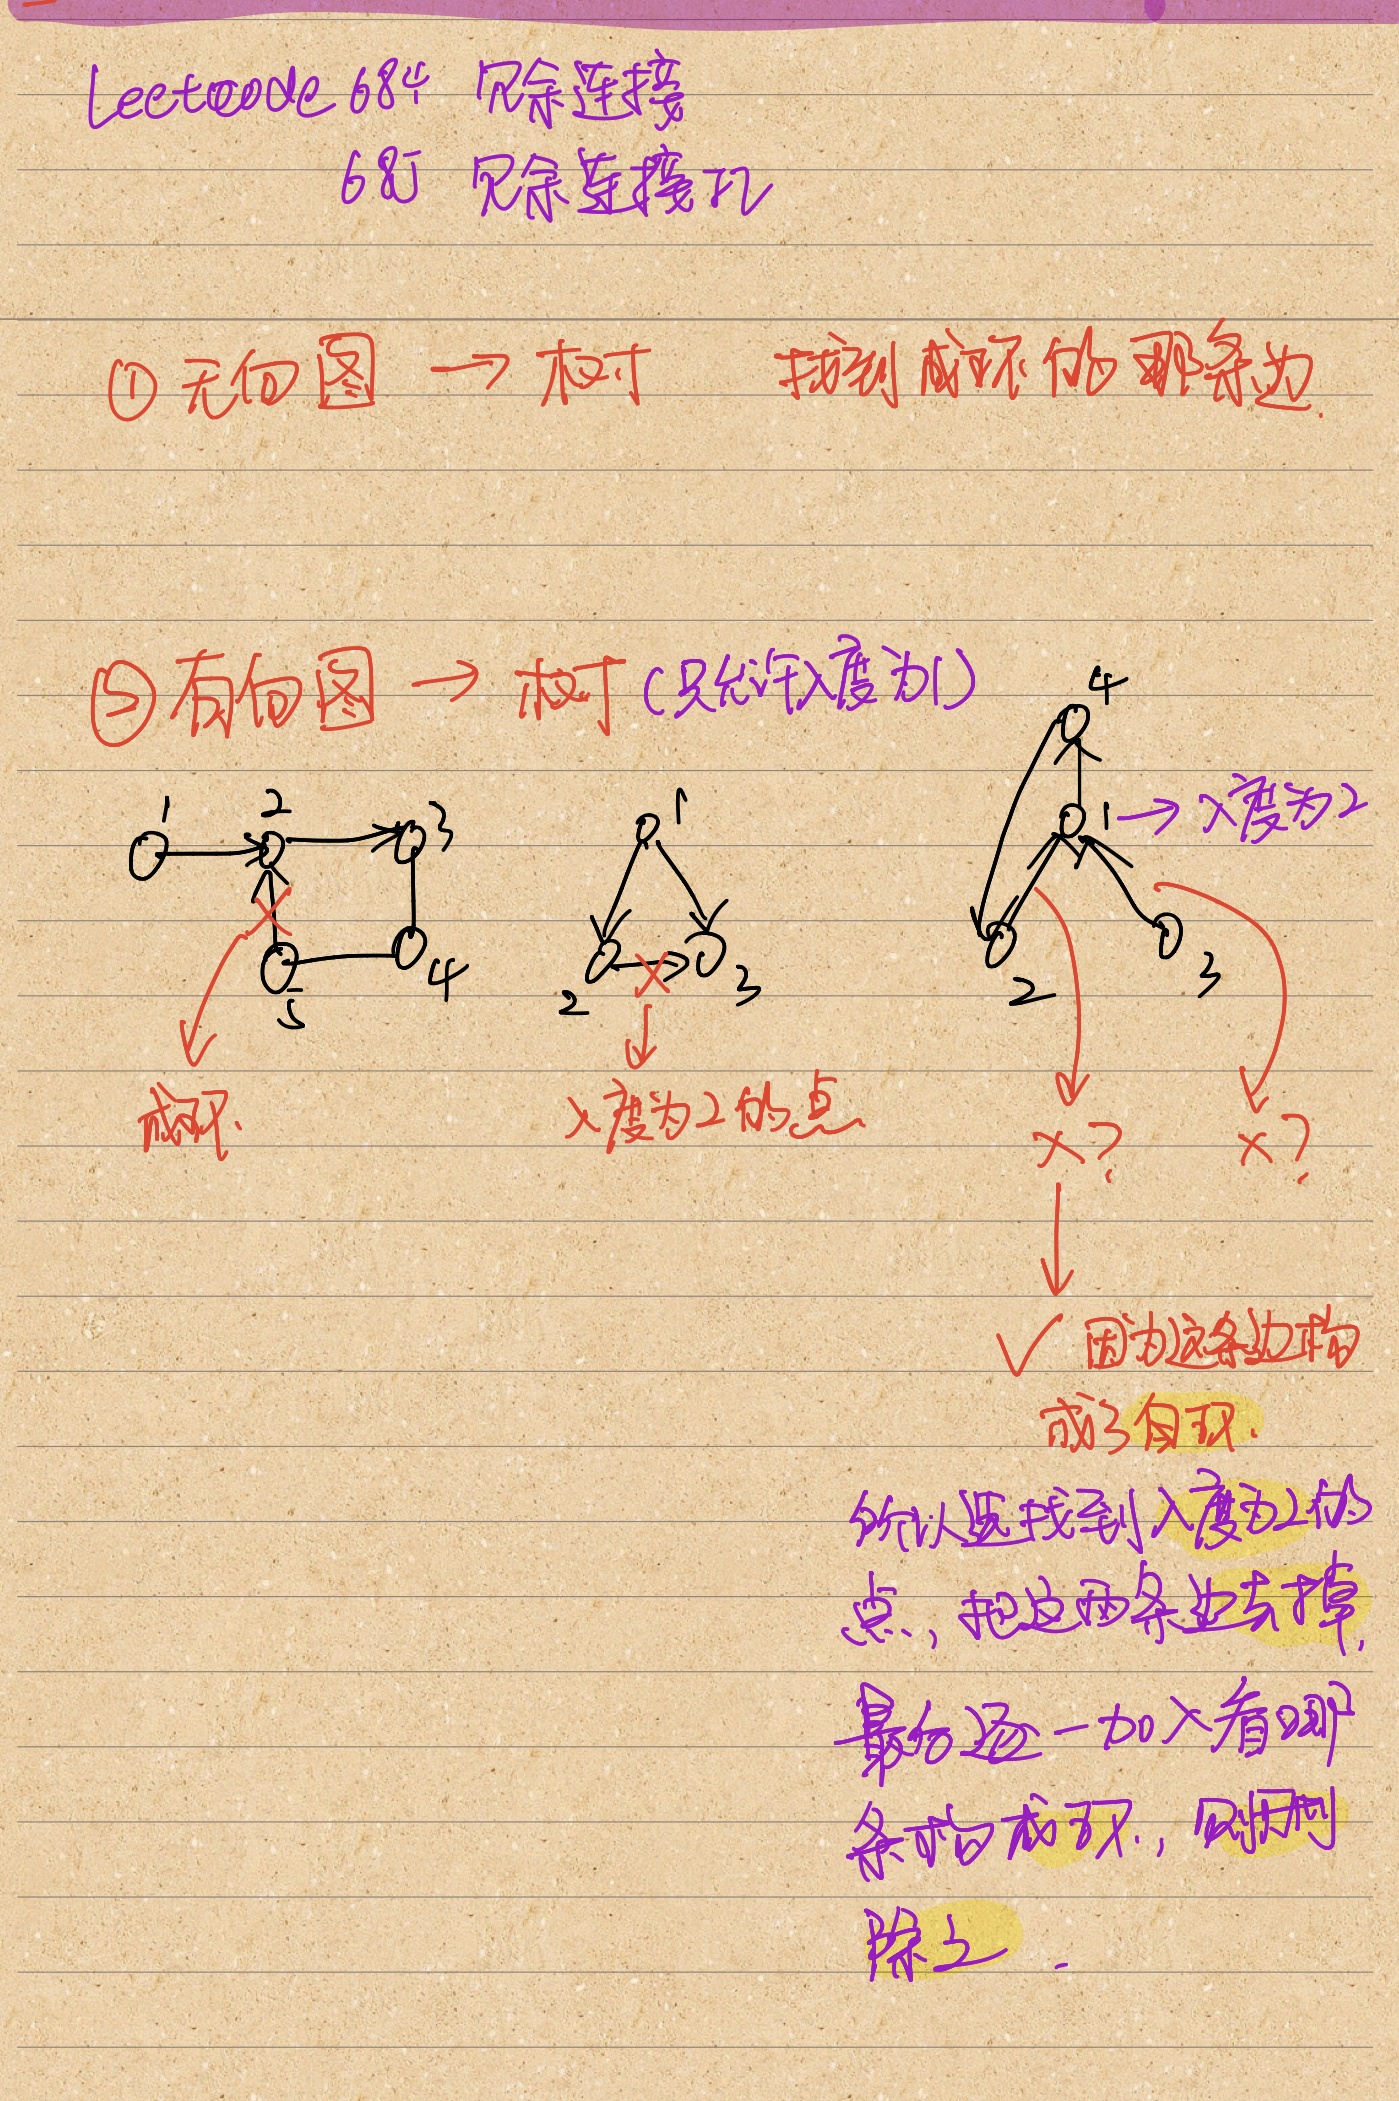 Leetcode 684 冗余连接
685 冗余连接 II
① 无向图 → 树 找到成环的那条边.
② 有向图 → 树 (只允许入度为1)
4
1 2 3
1
1 → 入度为2
5 4
2 3
2 3
成环.
入度为2的点
x? x?
✓ 因为这条边构
成了自环.
所以要找到入度为2的
点, 把这两条边去掉,
最后逐一加入看哪
条构成环., 则删
除之.